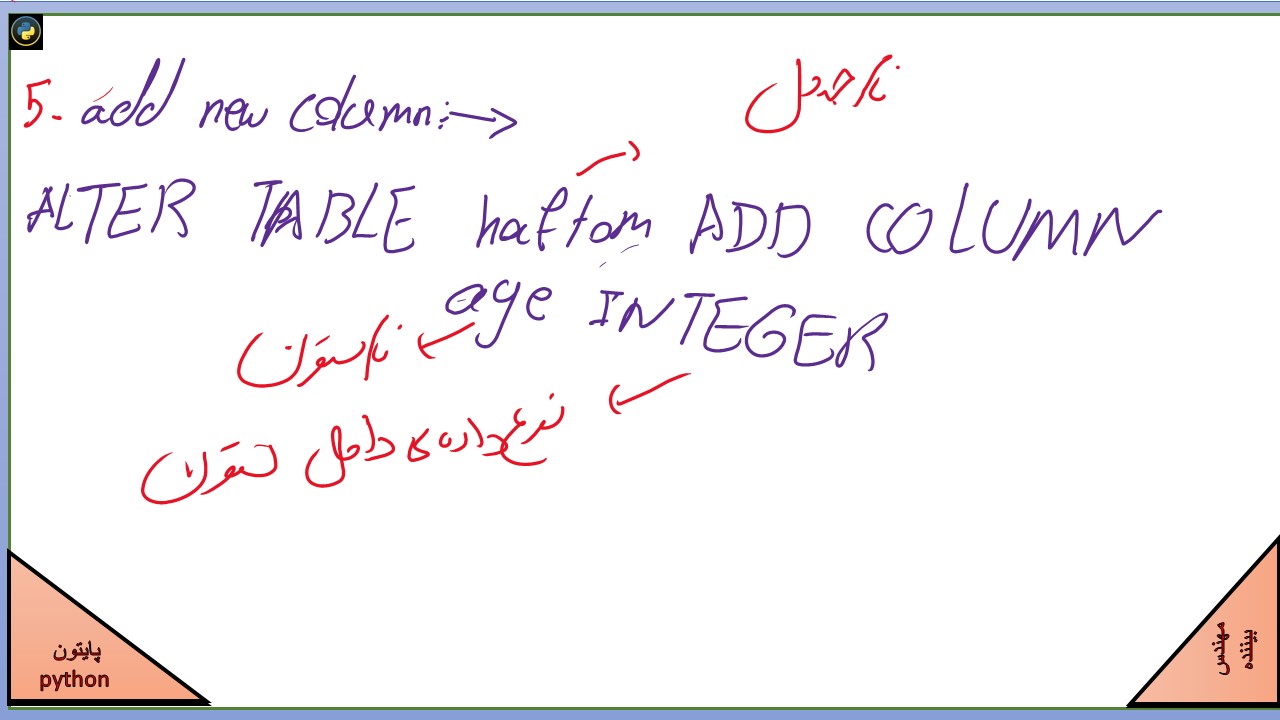 5. add new column: →
نام جدول
ALTER TABLE haftom ADD COLUMN
age INTEGER
نام ستون
نوع داده داخل ستون
پایتون
python
مهندس
بیننده